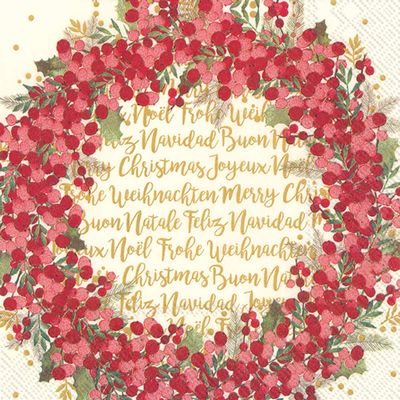 Noël Frohe Weih
Feliz Navidad Buon Na
Merry Christmas Joyeux Noël
Frohe Weihnachten Merry Chris
Buon Natale Feliz Navidad
Noël Frohe Weihnachten
Christmas Buon Natal
Feliz Navidad Joyeux
Noël Fr